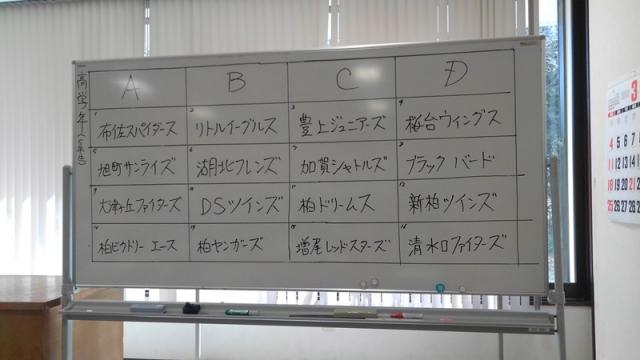 A B C D
1 布佐スパイダース 2 リトルイーグルス 3 豊上ジュニアーズ 4 梅台ウィングス
5 旭町サンライズ 6 湖北フレンズ 7 加賀シャトルズ 8 ブラック バード
9 大津ヶ丘ファイターズ 10 DSツインズ 11 柏ドリームス 12 新柏ツインズ
柏ビクトリー エース 柏ヤンガーズ 増尾レッドスターズ 清水口ファイターズ
高学年
3
4 5 6 7
11 12 13 14
18 19 20 21
25 26 27 28